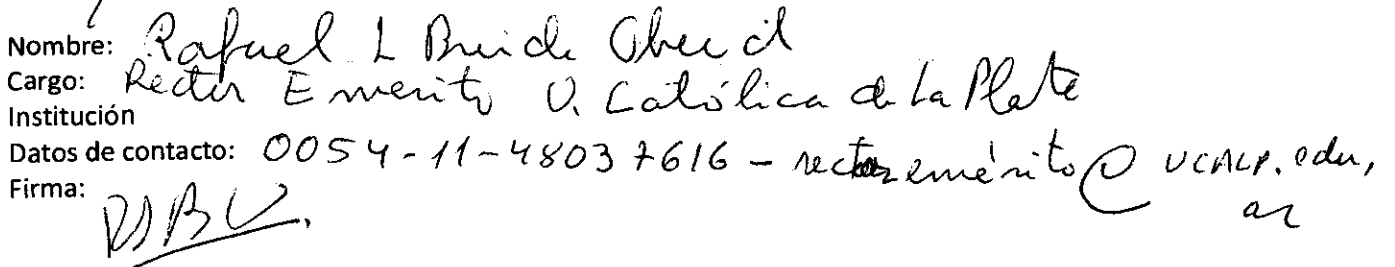 Nombre: Rafael L
Cargo: Rector Emerito U. Católica de La Plata
Institución
Datos de contacto: 0054-11-48037616 - rectoremérito@UCALP.edu.
ar
Firma: